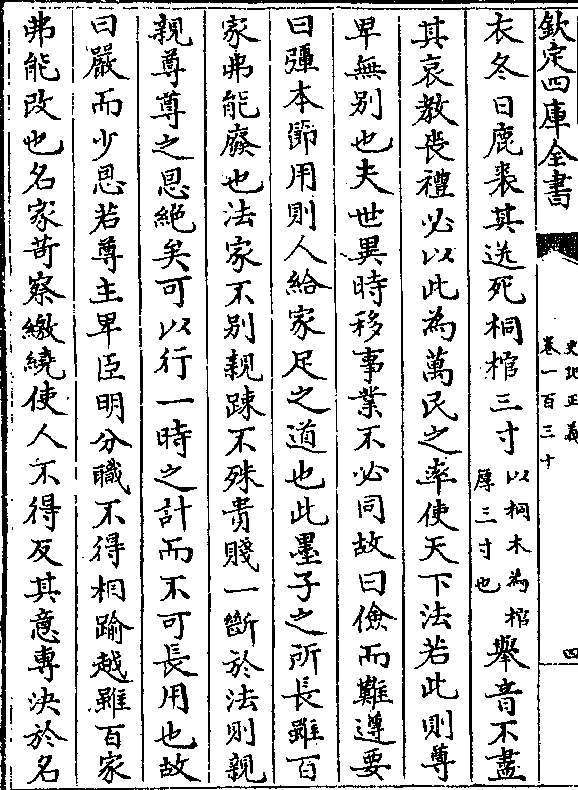 欽定四庫全書
史記正義
卷一百三十
四
衣冬日鹿裘其送死桐棺三寸以桐木為棺厚三寸也舉音不盡
其哀教喪禮必以此為萬民之率使天下法若此則尊
卑無别也夫世異時移事業不必同故曰儉而難遵要
曰彊本節用則人給家足之道也此墨子之所長雖百
家弗能廢也法家不别親踈不殊貴賤一斷於法則親
親尊尊之恩絶矣可以行一時之計而不可長用也故
曰嚴而少恩若尊主卑臣明分職不得相踰越雖百家
弗能改也名家苛察繳繞使人不得反其意專決於名